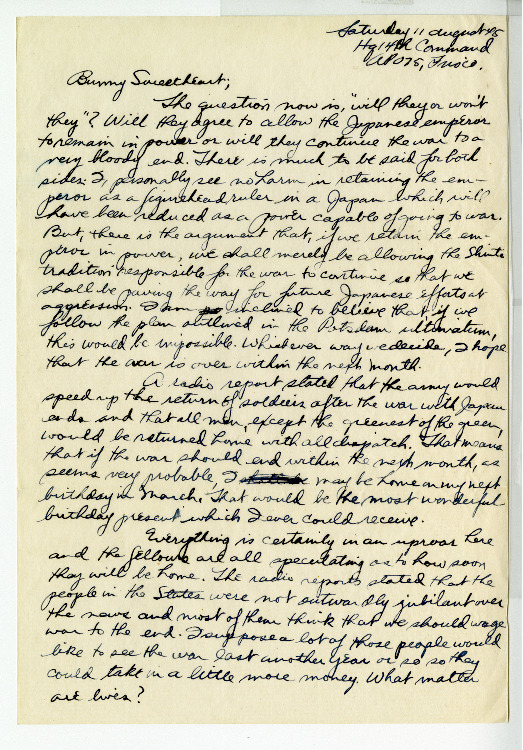 Saturday 11 August 45
Hq 14th Command
APO 75, Frisco.
Bunny Sweetheart;
The question now is, "will they or won't
they"? Will they agree to allow the Japanese emperor
to remain in power or will they continue the war to a
very bloody end. There is much to be said for both
sides. I, personally see no harm in retaining the em-
peror as a figurehead ruler in a Japan which will
have been reduced as a power capable of going to war.
But, there is the argument that, if we retain the em-
peror in power, we shall merely be allowing the Shinto
tradition responsible for the war to continue so that we
shall be paving the way for future Japanese efforts at
aggression. I am inclined to believe that, if we
follow the plan outlined in the Potsdam ultimatum,
this would be impossible. Whichever way we decide, I hope
that the war is over within the next month.
A radio report stated that the army would
speed up the return of soldiers after the war with Japan
ends and that all men, except the greenest of the green,
would be returned home with all dispatch. That means
that if the war should end within the next month, as
seems very probable, I may be home on my next
birthday in March. That would be the most wonderful
birthday present which I ever could receive.
Everything is certainly in an uproar here
and the fellows are all speculating as to how soon
they will be home. The radio reports stated that the
people in the States were not outwardly jubilant over
the news and most of them think that we should wage
war to the end. I suppose a lot of those people would
like to see the war last another year or so so they
could take in a little more money. What matter
are lives?